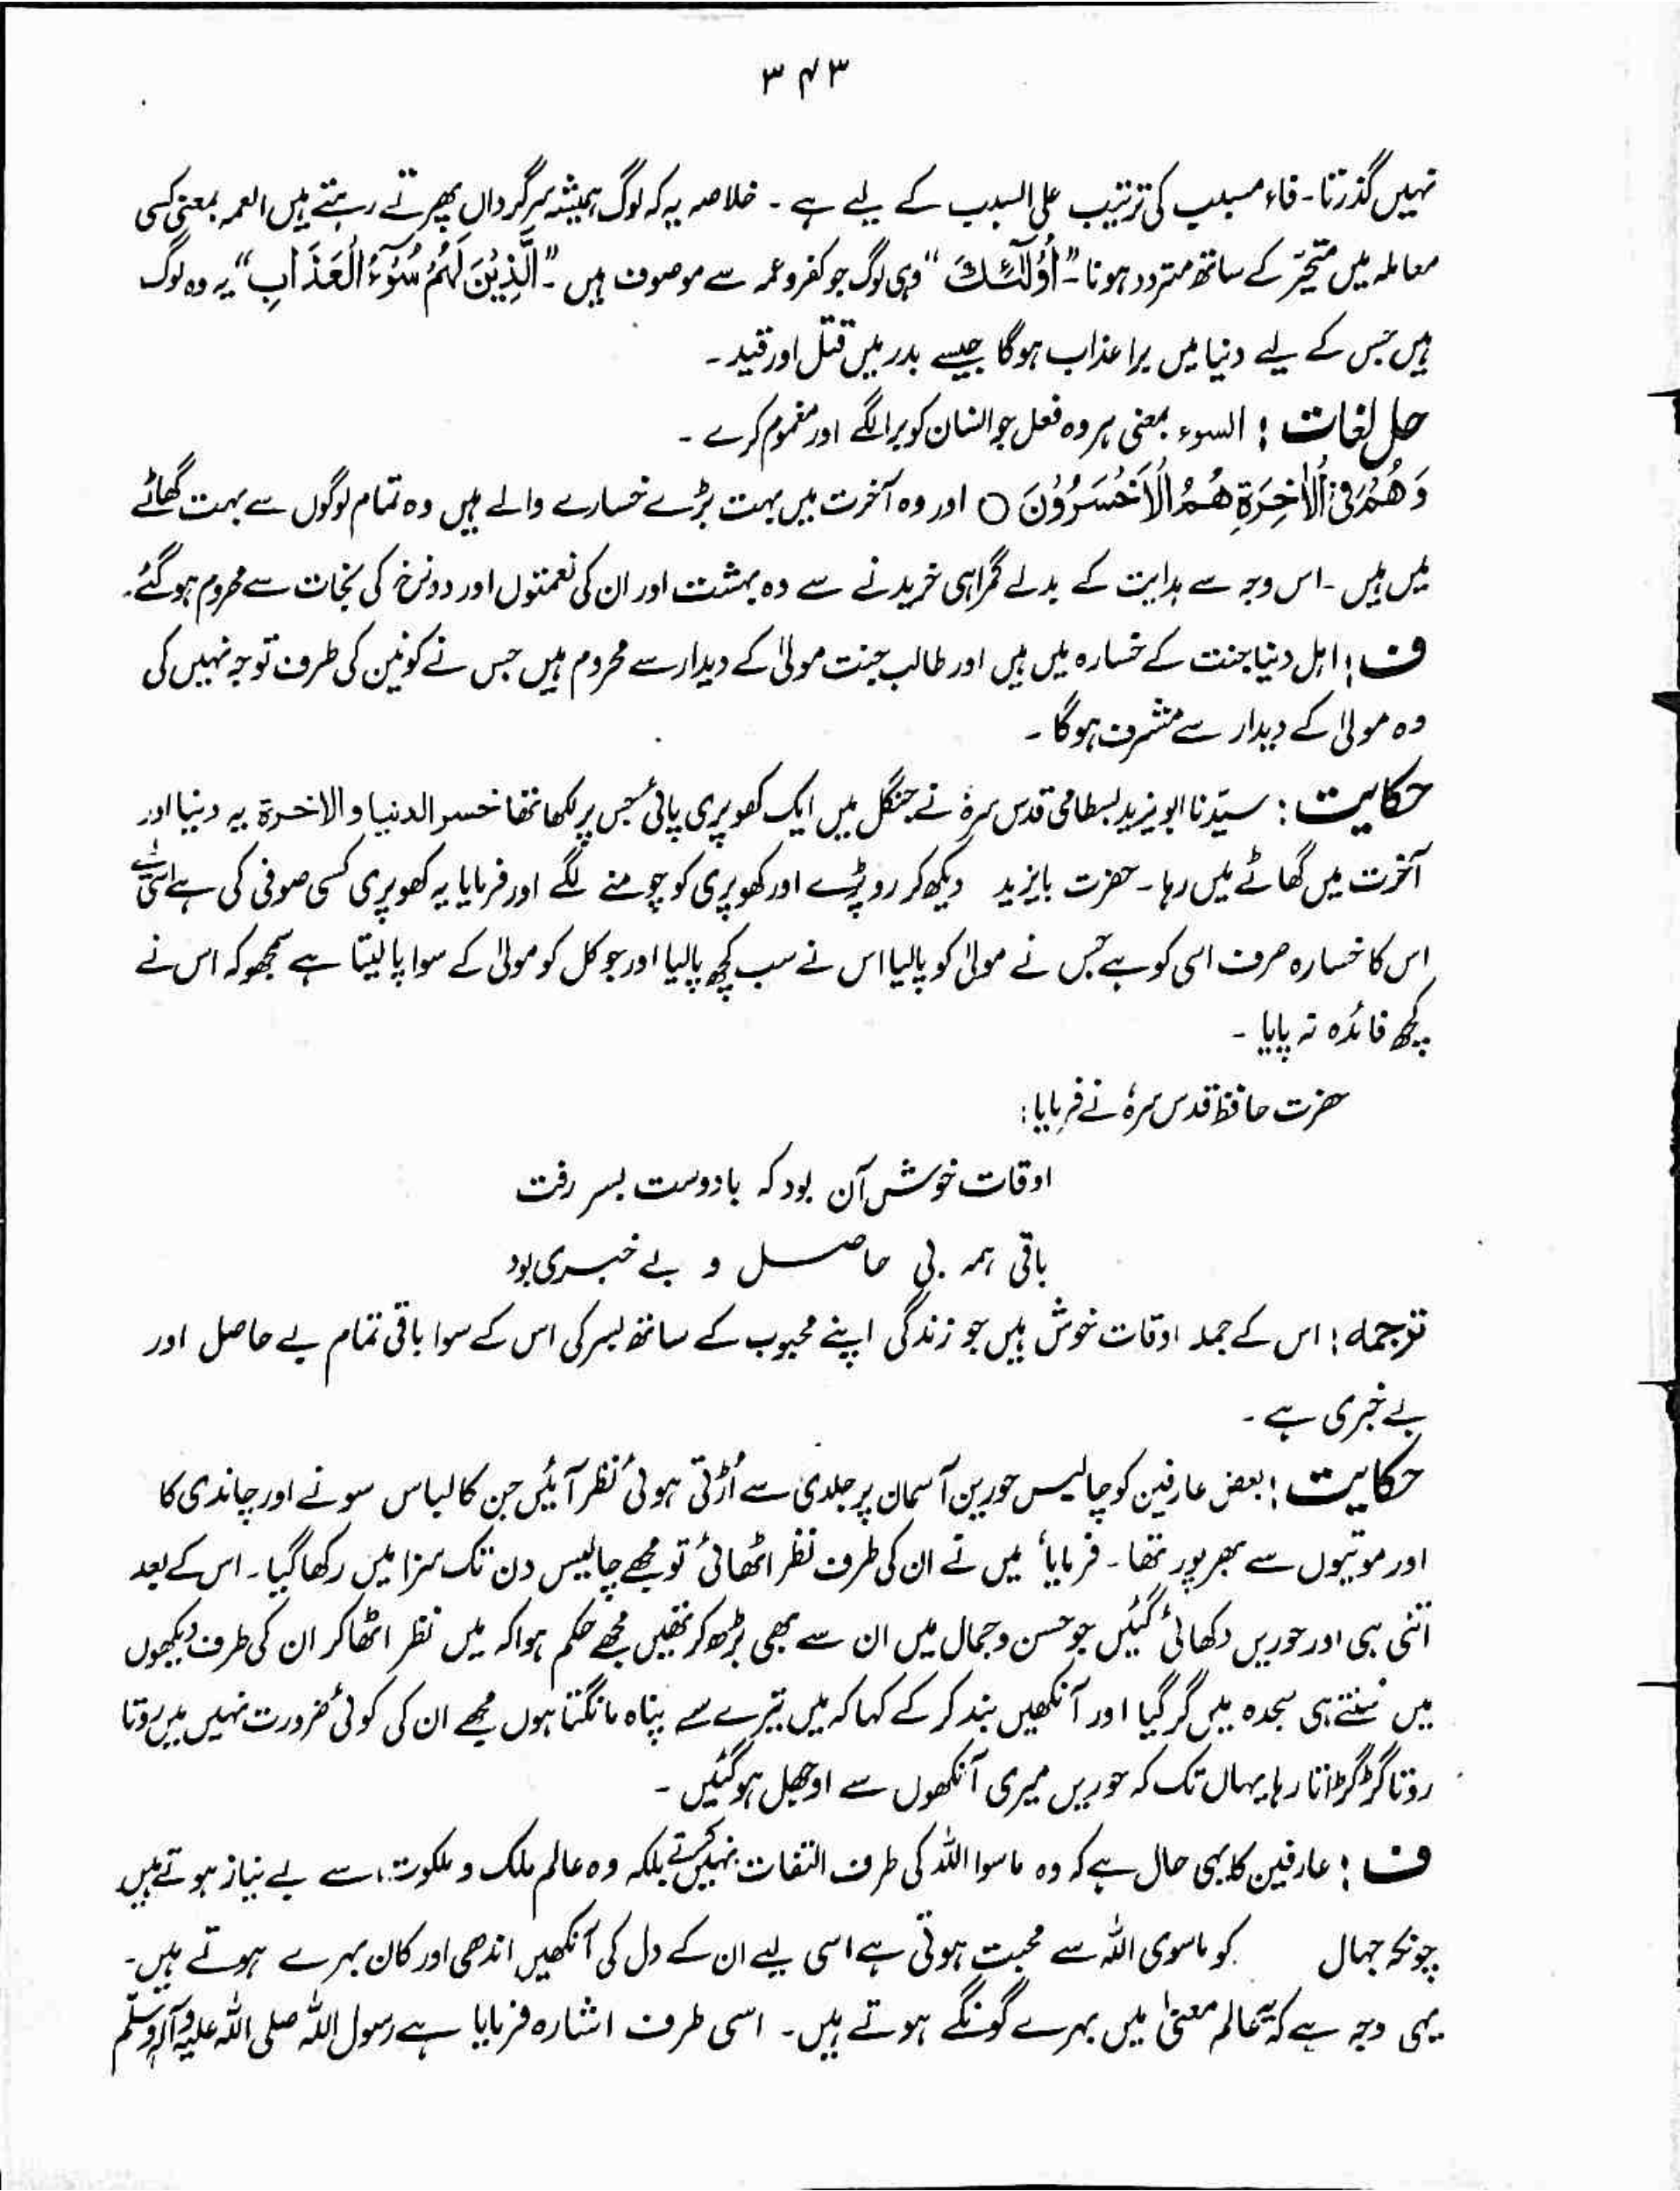 ۳۴۳
نہیں گذرتا۔ فاء مسبب کی ترتیب علی السبب کے لیے ہے ۔ خلاصہ یہ کہ لوگ ہمیشہ سرگرداں پھرتے رہتے ہیں العمہ بمعنی کسی
معاملہ میں متحیّر کے ساتھ متردد ہونا۔ "أُولٰٓئِكَ" وہی لوگ جو کفر و عمہ سے موصوف ہیں ۔ "الَّذِيْنَ لَهُمْ سُوْٓءُ الْعَذَابِ" یہ وہ لوگ
ہیں جس کے لیے دنیا میں برا عذاب ہوگا جیسے بدر میں قتل اور قید ۔
حل لغات : السوء بمعنی ہر وہ فعل جو انسان کو برا لگے اور مغموم کرے ۔
وَهُمْ فِي الْاٰخِرَةِ هُمُ الْاَخْسَرُوْنَ ○ اور وہ آخرت میں بہت بڑے خسارے والے ہیں وہ تمام لوگوں سے بہت گھاٹے
میں ہیں ۔ اس وجہ سے ہدایت کے بدلے گمراہی خریدنے سے وہ بہشت اور ان کی نعمتوں اور دوزخ کی نجات سے محروم ہوگئے۔
ف : اہل دنیا جنت کے خسارہ میں ہیں اور طالب جنت مولیٰ کے دیدار سے محروم ہیں جس نے کونین کی طرف توجہ نہیں کی
وہ مولیٰ کے دیدار سے مشرف ہوگا ۔
حکایت : سیّدنا ابو یزید بسطامی قدس سرہٗ نے جنگل میں ایک کھوپری پائی جس پر لکھا تھا خسر الدنیا و الاخرۃ یہ دنیا اور
آخرت میں گھاٹے میں رہا ۔ حضرت بایزید دیکھ کر رو پڑے اور کھوپری کو چومنے لگے اور فرمایا یہ کھوپری کسی صوفی کی ہے اسی لئے
اس کا خسارہ صرف اسی کو ہے جس نے مولیٰ کو پالیا اس نے سب کچھ پالیا اور جو کل کو مولیٰ کے سوا پا لیتا ہے سمجھو کہ اس نے
کچھ فائدہ نہ پایا ۔
حضرت حافظ قدس سرہٗ نے فرمایا :
اوقات خوش آن بود کہ بادوست بسر رفت
باقی ہمہ بی حاصل و بے خبری بود
ترجمہ : اس کے جملہ اوقات خوش ہیں جو زندگی اپنے محبوب کے ساتھ بسر کی اس کے سوا باقی تمام بے حاصل اور
بے خبری ہے ۔
حکایت : بعض عارفین کو چالیس حوریں آسمان پر جلدی سے اُڑتی ہوئی نظر آئیں جن کا لباس سونے اور چاندی کا
اور موتیوں سے بھرپور تھا ۔ فرمایا میں نے ان کی طرف نظر اٹھائی تو مجھے چالیس دن تک سزا میں رکھا گیا ۔ اس کے بعد
اتنی ہی اور حوریں دکھائی گئیں جو حسن و جمال میں ان سے بھی بڑھ کر تھیں مجھے حکم ہوا کہ میں نظر اٹھا کر ان کی طرف دیکھوں
میں سنتے ہی سجدہ میں گر گیا اور آنکھیں بند کر کے کہا کہ میں تیرے سے پناہ مانگتا ہوں مجھے ان کی کوئی ضرورت نہیں میں روتا
روتا گڑگڑاتا رہا یہاں تک کہ حوریں میری آنکھوں سے اوجھل ہوگئیں ۔
ف : عارفین کا یہی حال ہے کہ وہ ماسوا اللہ کی طرف التفات نہیں کرتے بلکہ وہ عالم ملک و ملکوت سے بے نیاز ہوتے ہیں
چونکہ جہال کو ماسوی اللہ سے محبت ہوتی ہے اسی لیے ان کے دل کی آنکھیں اندھی اور کان بہرے ہوتے ہیں۔
یہی وجہ ہے کہ یہ عالم معنیٰ میں بہرے گونگے ہوتے ہیں ۔ اسی طرف اشارہ فرمایا ہے رسول اللہ صلی اللہ علیہ وآلہ وسلم